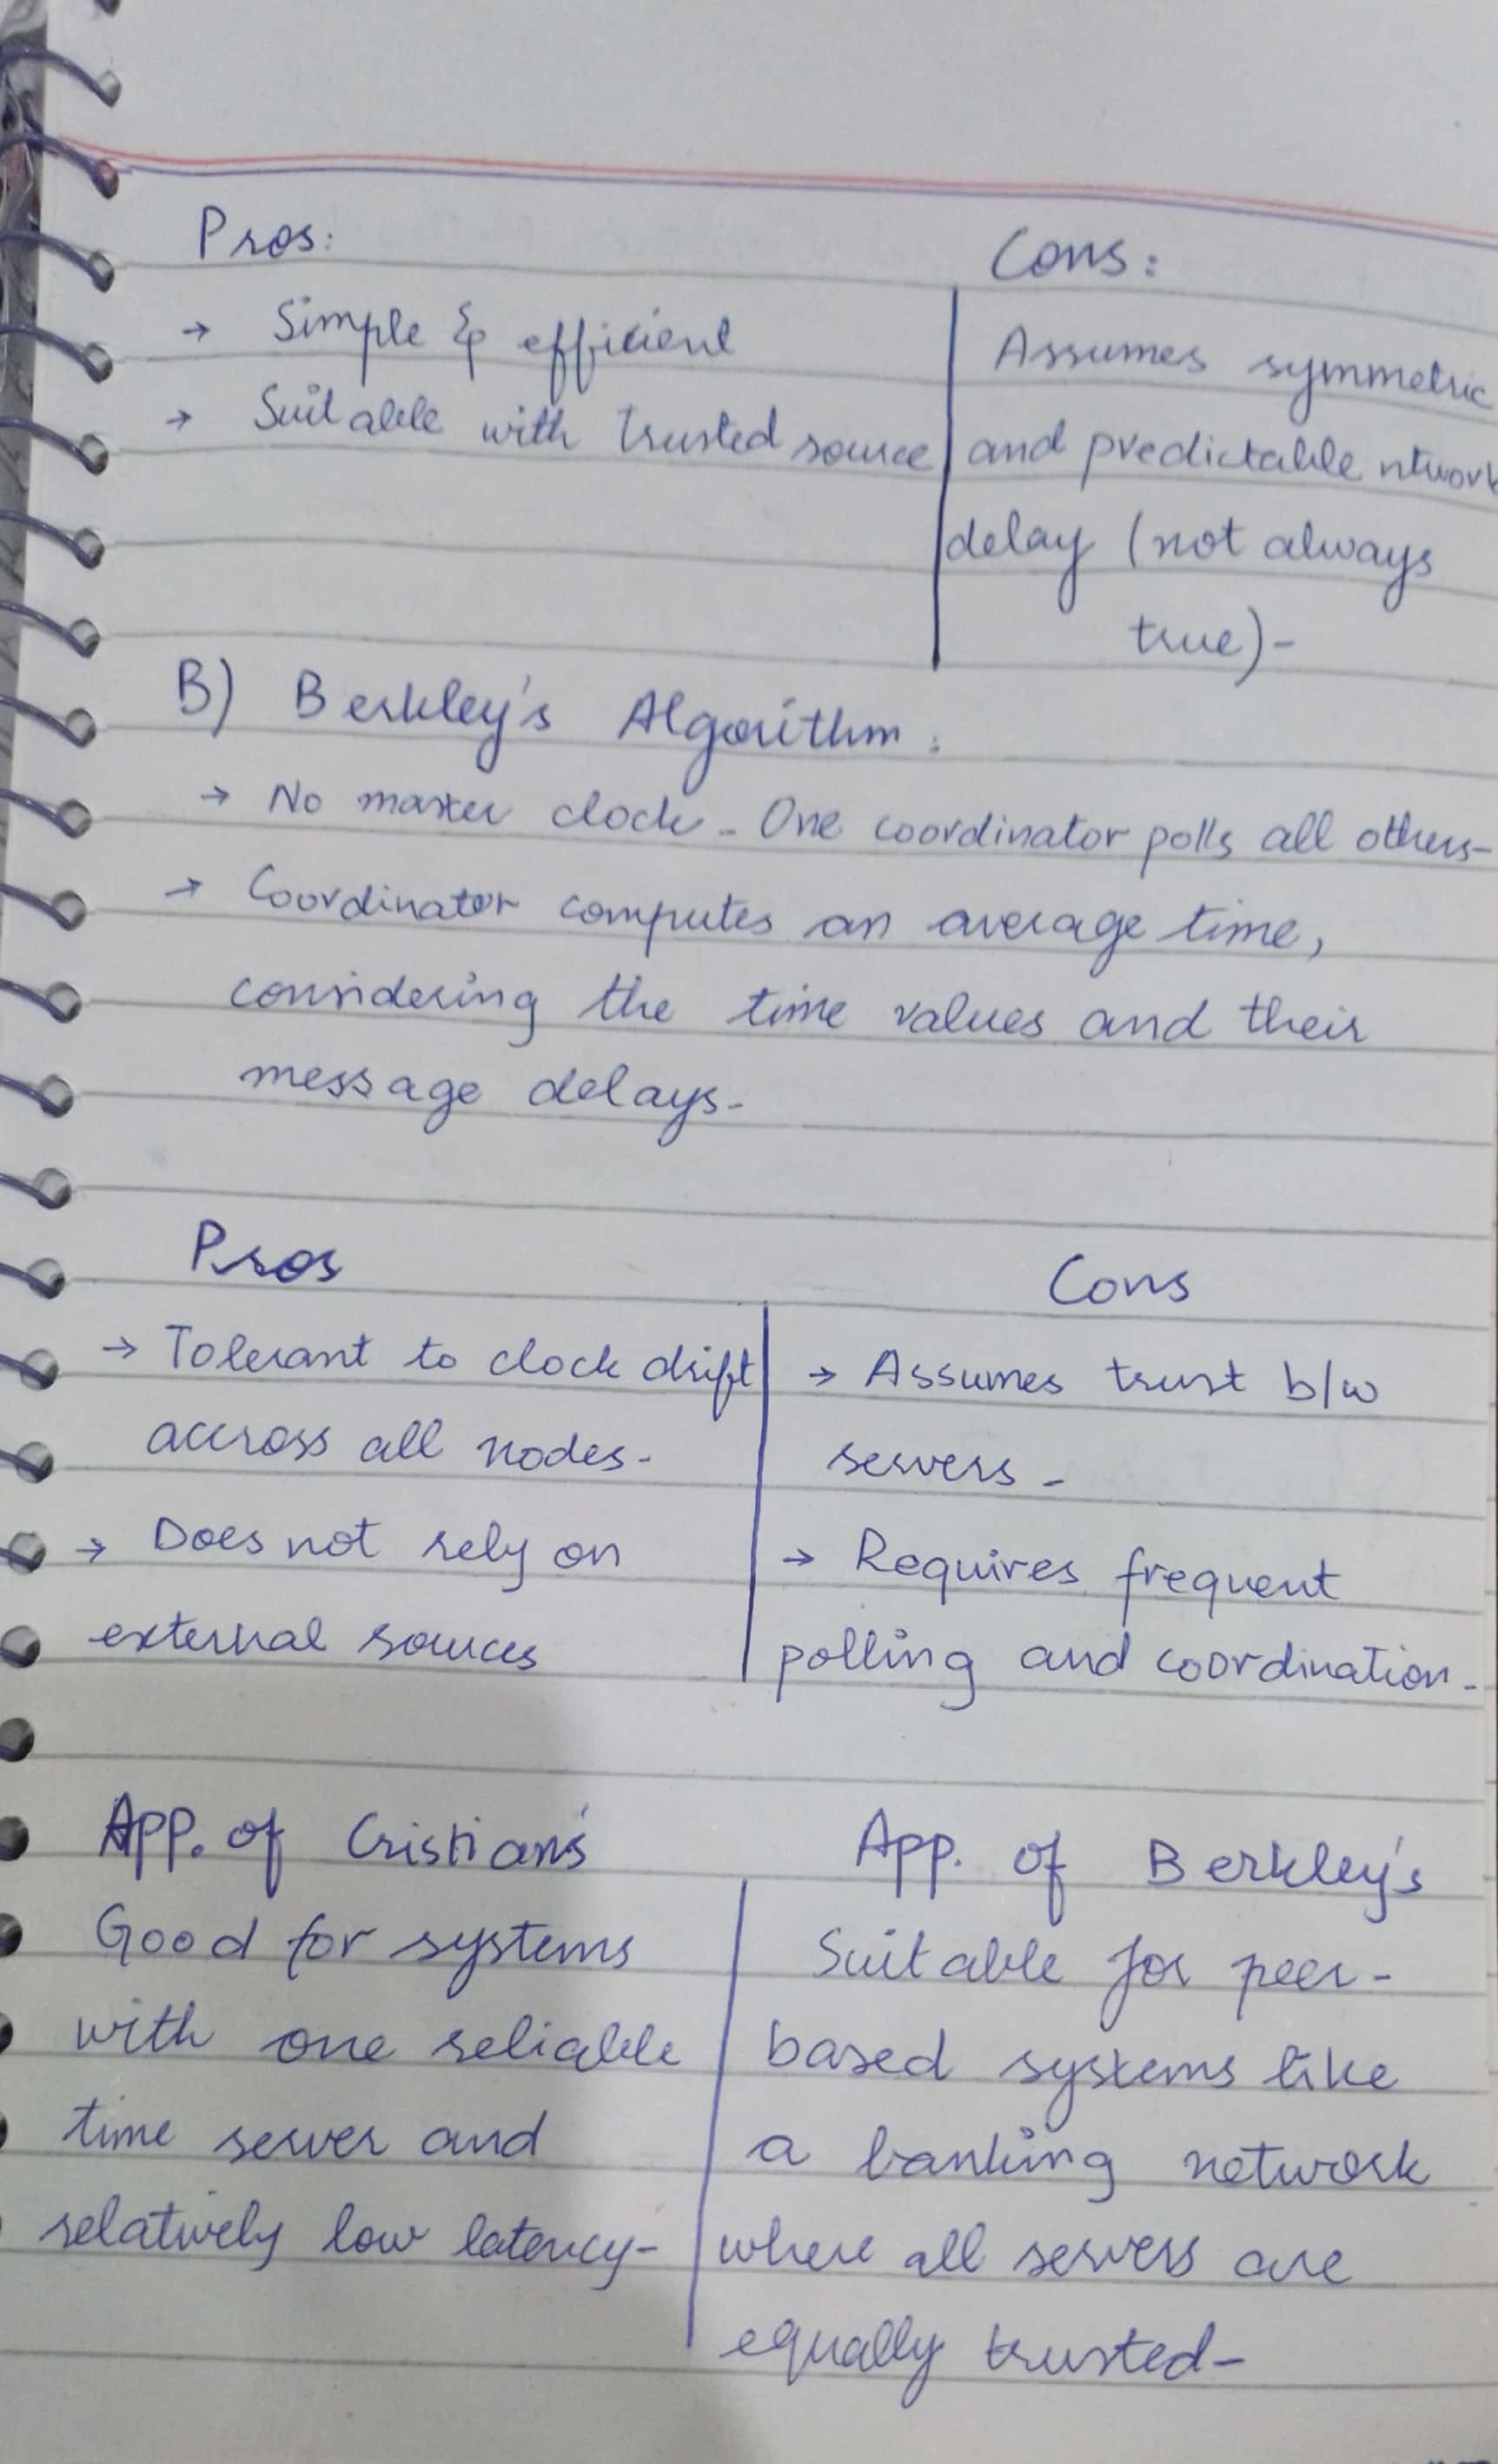 Pros:
→ Simple & efficient
→ Suitable with trusted source
Cons:
Assumes symmetric
and predictable ntwork
delay (not always
true)-
B) Berkley's Algorithm:
→ No master clock - One coordinator polls all others-
→ Coordinator computes an average time,
considering the time values and their
message delays-
Pros
→ Tolerant to clock drift
accross all nodes-
→ Does not rely on
external sources
Cons
→ Assumes trust b/w
servers-
→ Requires frequent
polling and coordination-
App. of Cristian's
Good for systems
with one reliable
time server and
relatively low latency-
App. of Berkley's
Suitable for peer-
based systems like
a banking network
where all servers are
equally trusted-